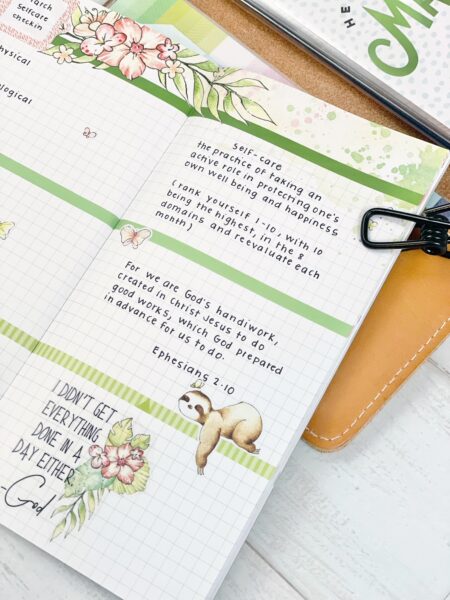 March
Selfcare
checkin
HE
MA
Physical
ological
Self-care
the practice of taking an
active role in protecting one's
own well being and happiness
(rank yourself 1-10, with 10
being the highest, in the 8
domains and reevaluate each
month)
For we are God's handiwork,
created in Christ Jesus to do
good works, which God prepared
in advance for us to do.
Ephesians 2:10
I DIDN'T GET
EVERYTHING
DONE IN A
DAY EITHER
-God